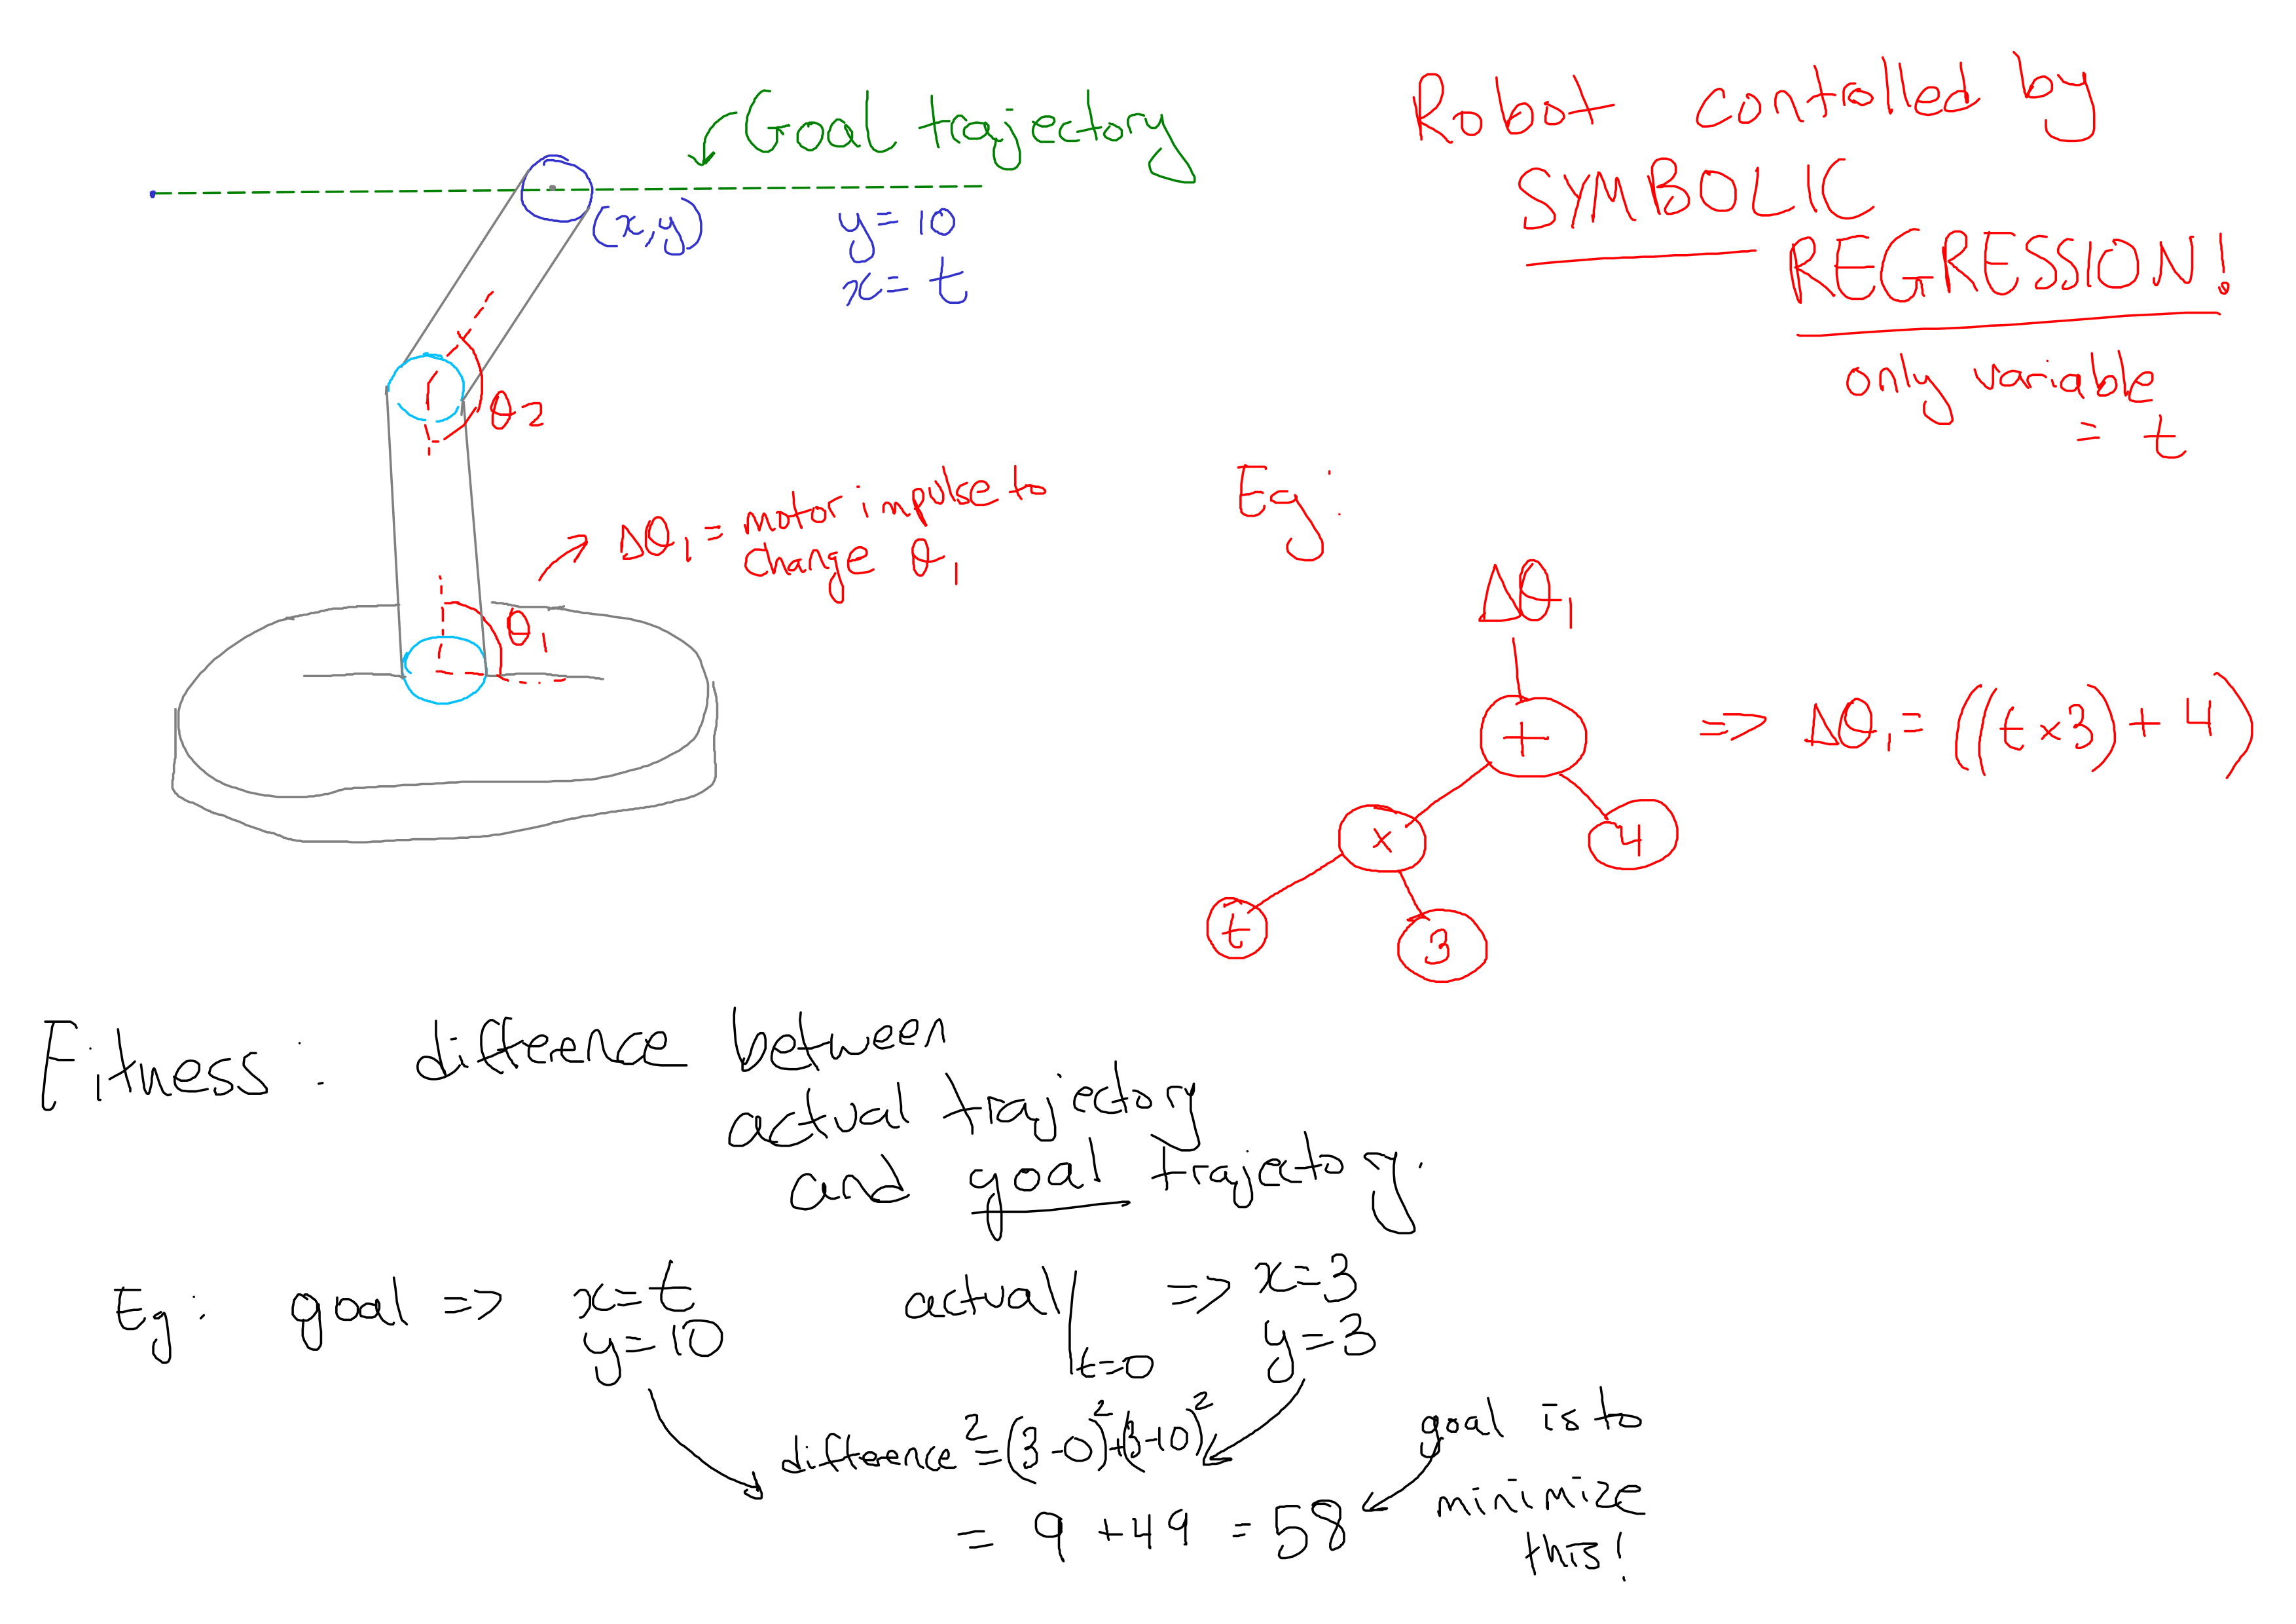 Goal trajectory
(x,y)
y=10
x=t
θ2
Δθ1 = motor impulse to
change θ1
θ1
Robot controlled by
SYMBOLIC
REGRESSION!
only variable
= t
Eg:
Δθ1
+
x
4
t
3
=> Δθ1 = ((t x 3) + 4)
Fitness: difference between
actual trajectory
and goal trajectory.
Eg: goal => x=t
y=10
actual|t=0 => x=3
y=3
difference² = (3-0)²+(3-10)²
= 9 + 49 = 58
goal is to
minimize
this!